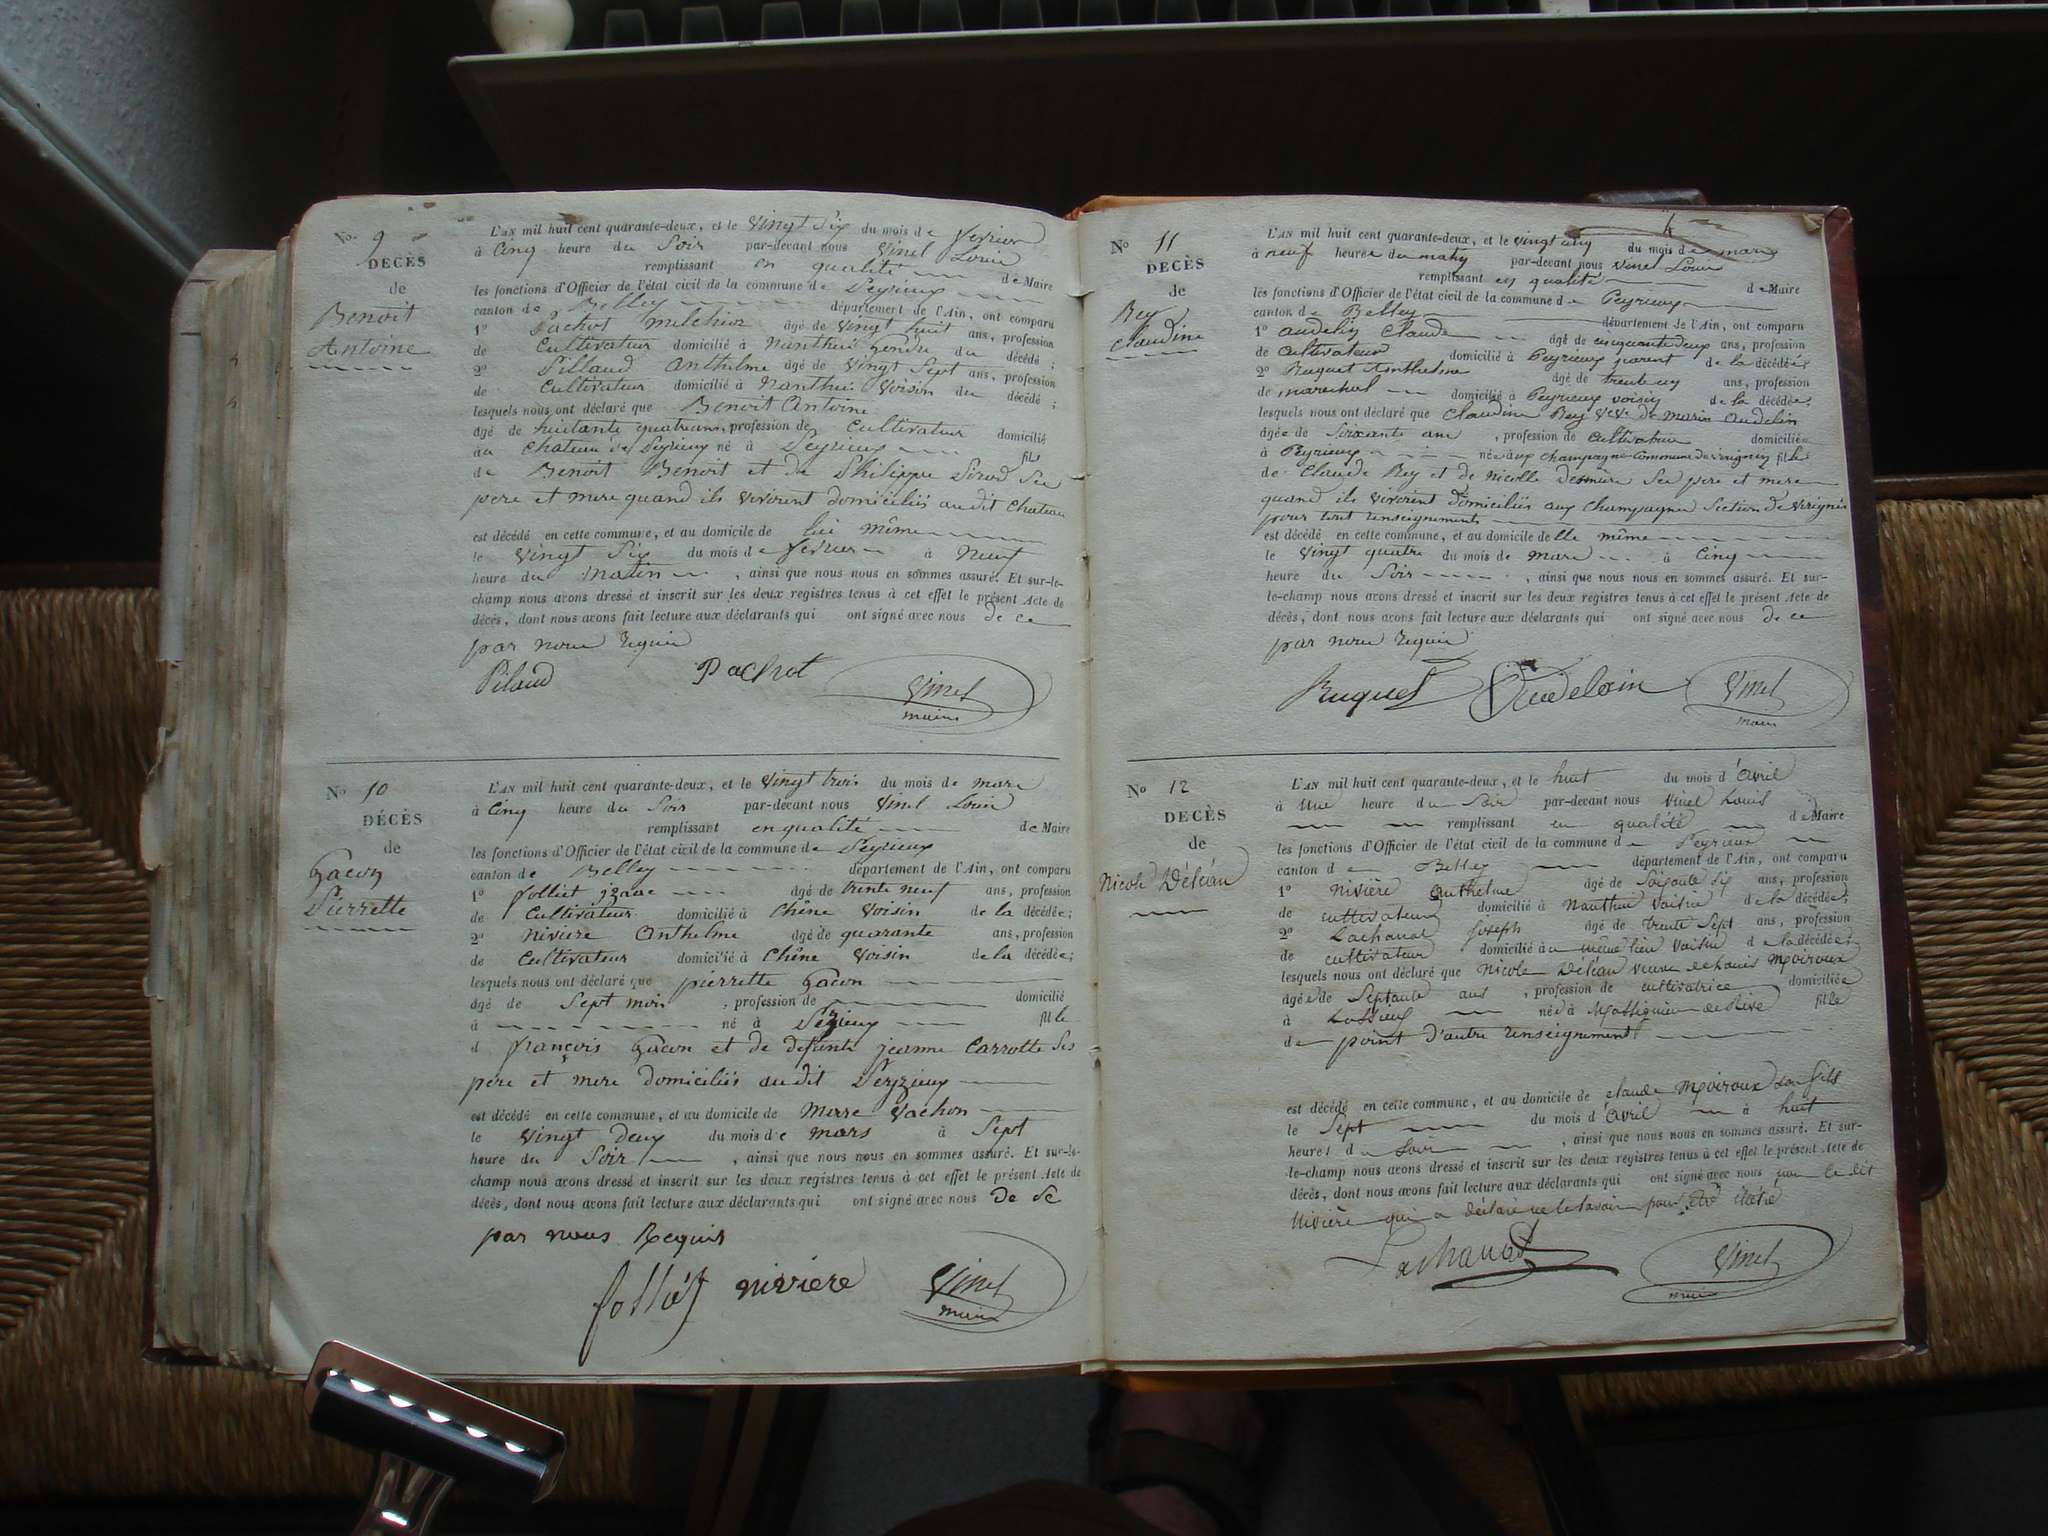 No. 9
DECÈS
de
Benoit
Antoine
L'AN mil huit cent quarante-deux, et le vingt Six du mois de fevrier
à Cinq heure du Soir par-devant nous Vinel Louis
remplissant en qualité de Maire
les fonctions d'Officier de l'état civil de la commune de Peyrieux
canton de Belley département de l'Ain, ont comparu
1° Pachot Melchior âgé de vingt huit ans, profession
de Cultivateur domicilié à Nanthui gendre du décédé;
2° Pillaud Anthelme âgé de vingt Sept ans, profession
de Cultivateur domicilié à Nanthui voisin du décédé;
lesquels nous ont déclaré que Benoit Antoine
âgé de huitante quatre ans profession de Cultivateur domicilié
au Chateau de Peyrieux né à Peyrieux fils
de Benoit Benoit et de Philippe Ses
pere et mere quand ils vivoient domiciliés au dit Chateau
est décédé en cette commune, et au domicile de lui même
le vingt Six du mois de fevrier à Neuf
heure du Matin , ainsi que nous nous en sommes assuré. Et sur-le-
champ nous avons dressé et inscrit sur les deux registres tenus à cet effet le présent Acte de
décès, dont nous avons fait lecture aux déclarants qui ont signé avec nous de ce
par nous requis
Pilaud Pachot Vinel
maire
No 10
DÉCÈS
de
Gacon
Pierrette
L'AN mil huit cent quarante-deux, et le vingt trois du mois de mars
à Cinq heure du Soir par-devant nous Vinel Louis
remplissant en qualité de Maire
les fonctions d'Officier de l'état civil de la commune de Peyrieux
canton de Belley département de l'Ain, ont comparu
1° folliet izaac âgé de trente neuf ans, profession
de Cultivateur domicilié à Chêne voisin de la décédée;
2° Niviere Anthelme âgé de quarante ans, profession
de Cultivateur domicilié à Chêne voisin de la décédée;
lesquels nous ont déclaré que pierrette Gacon
âgé de Sept mois , profession de domicilié
à né à Peyrieux fille
d françois Gacon et de defunte jeanne Carrotte Ses
pere et mere domiciliés au dit Peyrieux
est décédé en cette commune, et au domicile de Vachon
le vingt deux du mois de mars à Sept
heure du Soir , ainsi que nous nous en sommes assuré. Et sur-le-
champ nous avons dressé et inscrit sur les deux registres tenus à cet effet le présent Acte de
décès, dont nous avons fait lecture aux déclarants qui ont signé avec nous de Ce
par nous Requis
folliét niviere Vinel
maire
No 11
DECÈS
de
Rey
Claudine
L'AN mil huit cent quarante-deux, et le vingt cinq du mois de mars
à neuf heure du matin par-devant nous Vinel Louis
remplissant en qualité de Maire
les fonctions d'Officier de l'état civil de la commune de Peyrieux
canton de Belley département de l'Ain, ont comparu
1° audelin Claude âgé de cinquante deux ans, profession
de cultivateur domicilié à Peyrieux parent de la décédée;
2° Ruguet Anthelme âgé de trente un ans, profession
de marechal domicilié à Peyrieux voisin de la décédée;
lesquels nous ont déclaré que Claudine Rey Vve de Audelin
âgée de Soixante ans , profession de cultivateur domiciliée
à Peyrieux née aux champagne commune de virignin fille
de Claude Rey et de Nicolle Ses pere et mere
quand ils vivoient domiciliés aux Champagne Section de Virignin
pour tout renseignements
est décédé en cette commune, et au domicile delle même
le vingt quatre du mois de mars à Cinq
heure du Soir , ainsi que nous nous en sommes assuré. Et sur-
le-champ nous avons dressé et inscrit sur les deux registres tenus à cet effet le présent Acte de
décès, dont nous avons fait lecture aux déclarants qui ont signé avec nous de ce
par nous requis
Ruguet Audelain Vinel
maire
No 12
DECÈS
de
Nicole Déléan
L'AN mil huit cent quarante-deux, et le huit du mois d'avril
à Une heure du Soir par-devant nous Vinel Louis
remplissant en qualité de Maire
les fonctions d'Officier de l'état civil de la commune de Peyrieux
canton de Belley département de l'Ain, ont comparu
1° Nivière Anthelme âgé de Soixante Six ans, profession
de cultivateur domicilié à Nanthui voisin de la décédée;
2° Lachanal joseph âgé de trente Sept ans, profession
de cultivateur domicilié au même lieu voisin de la décédée;
lesquels nous ont déclaré que Nicole Déléan veuve de Louis Moiroux
âgée de Septante ans , profession de cultivatrice domiciliée
à née à Massignieu de Rive fille
de point d'autre renseignement
est décédé en cette commune, et au domicile de claude Moiroux son fils
le Sept du mois d'avril à huit
heures d Soir , ainsi que nous nous en sommes assuré. Et sur-
le-champ nous avons dressé et inscrit sur les deux registres tenus à cet effet le présent Acte de
décès, dont nous avons fait lecture aux déclarants qui ont signé avec nous non le dit
Nivière qui a déclaré ne le savoir
Lachanal Vinel
maire